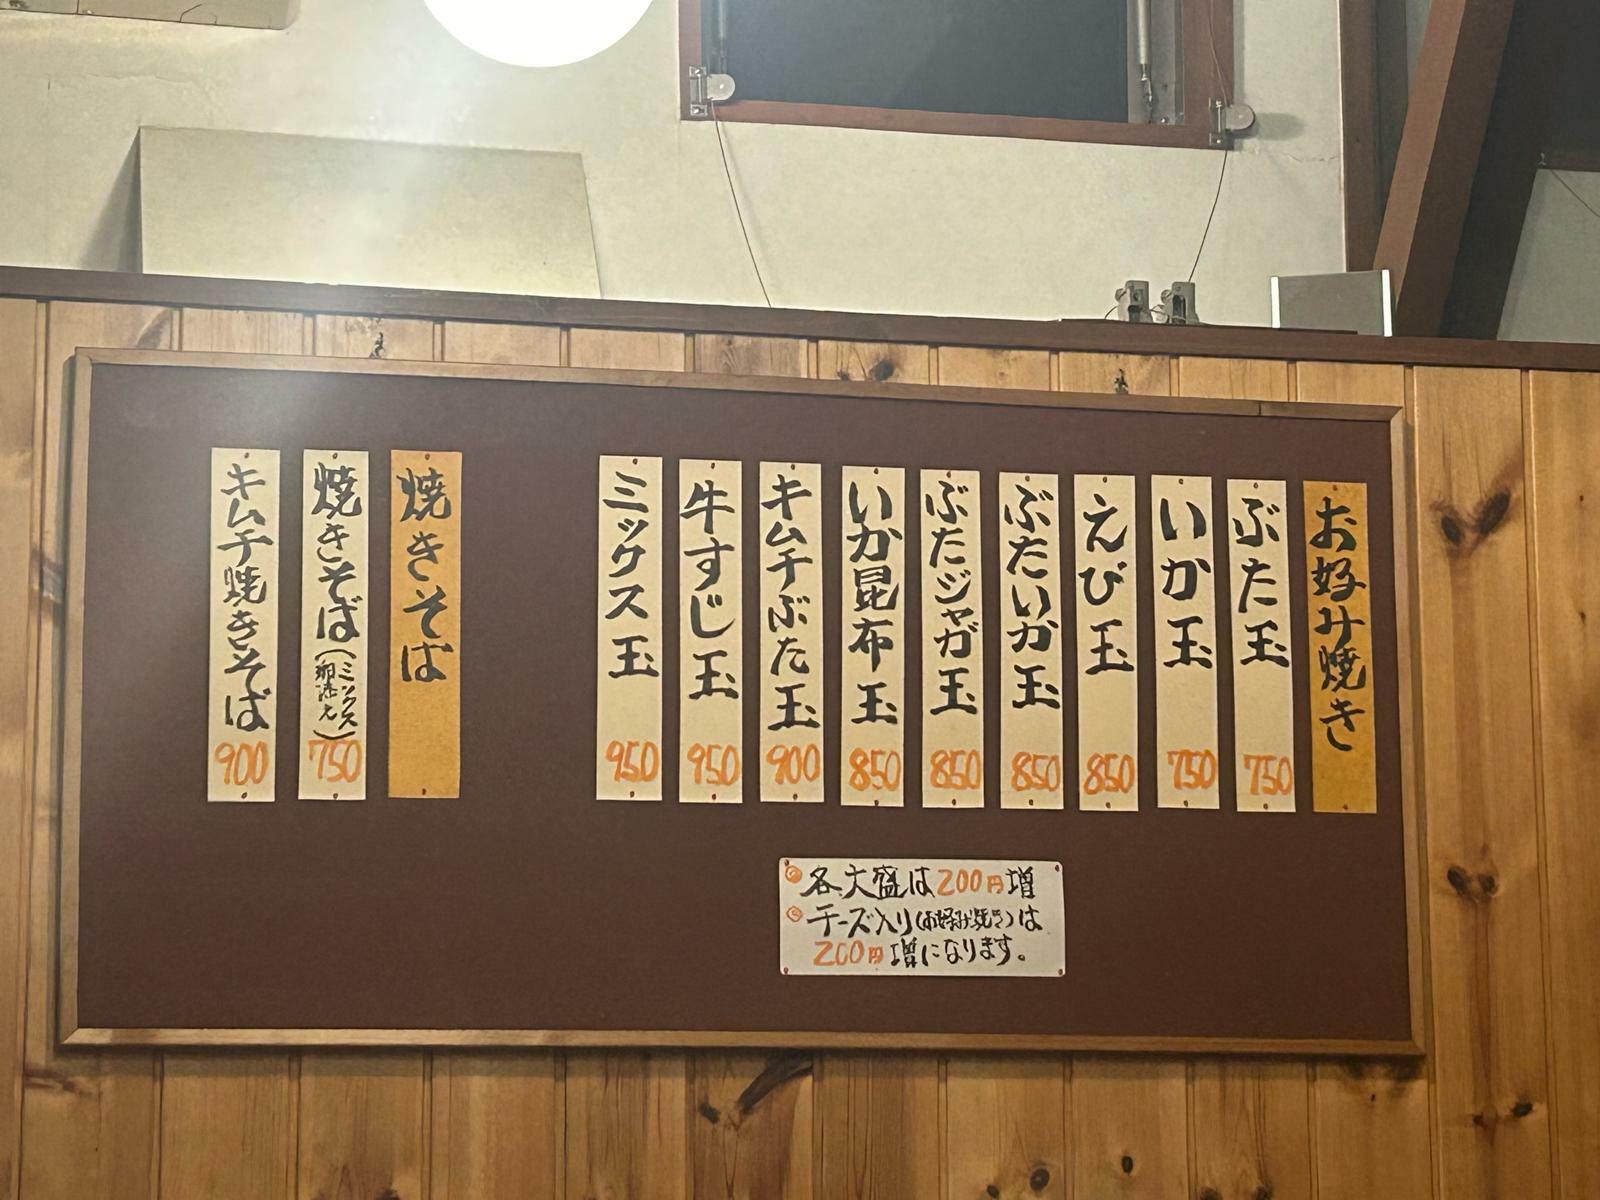 お好み焼き
ぶた玉 750
いか玉 750
えび玉 850
ぶたいか玉 850
ぶたジャガ玉 850
いか昆布玉 850
キムチぶた玉 900
牛すじ玉 950
ミックス玉 950
焼きそば
焼きそば(ミックス 卵添え) 750
キムチ焼きそば 900
各大盛は200円増
チーズ入り(お好み焼き)は
200円増になります。